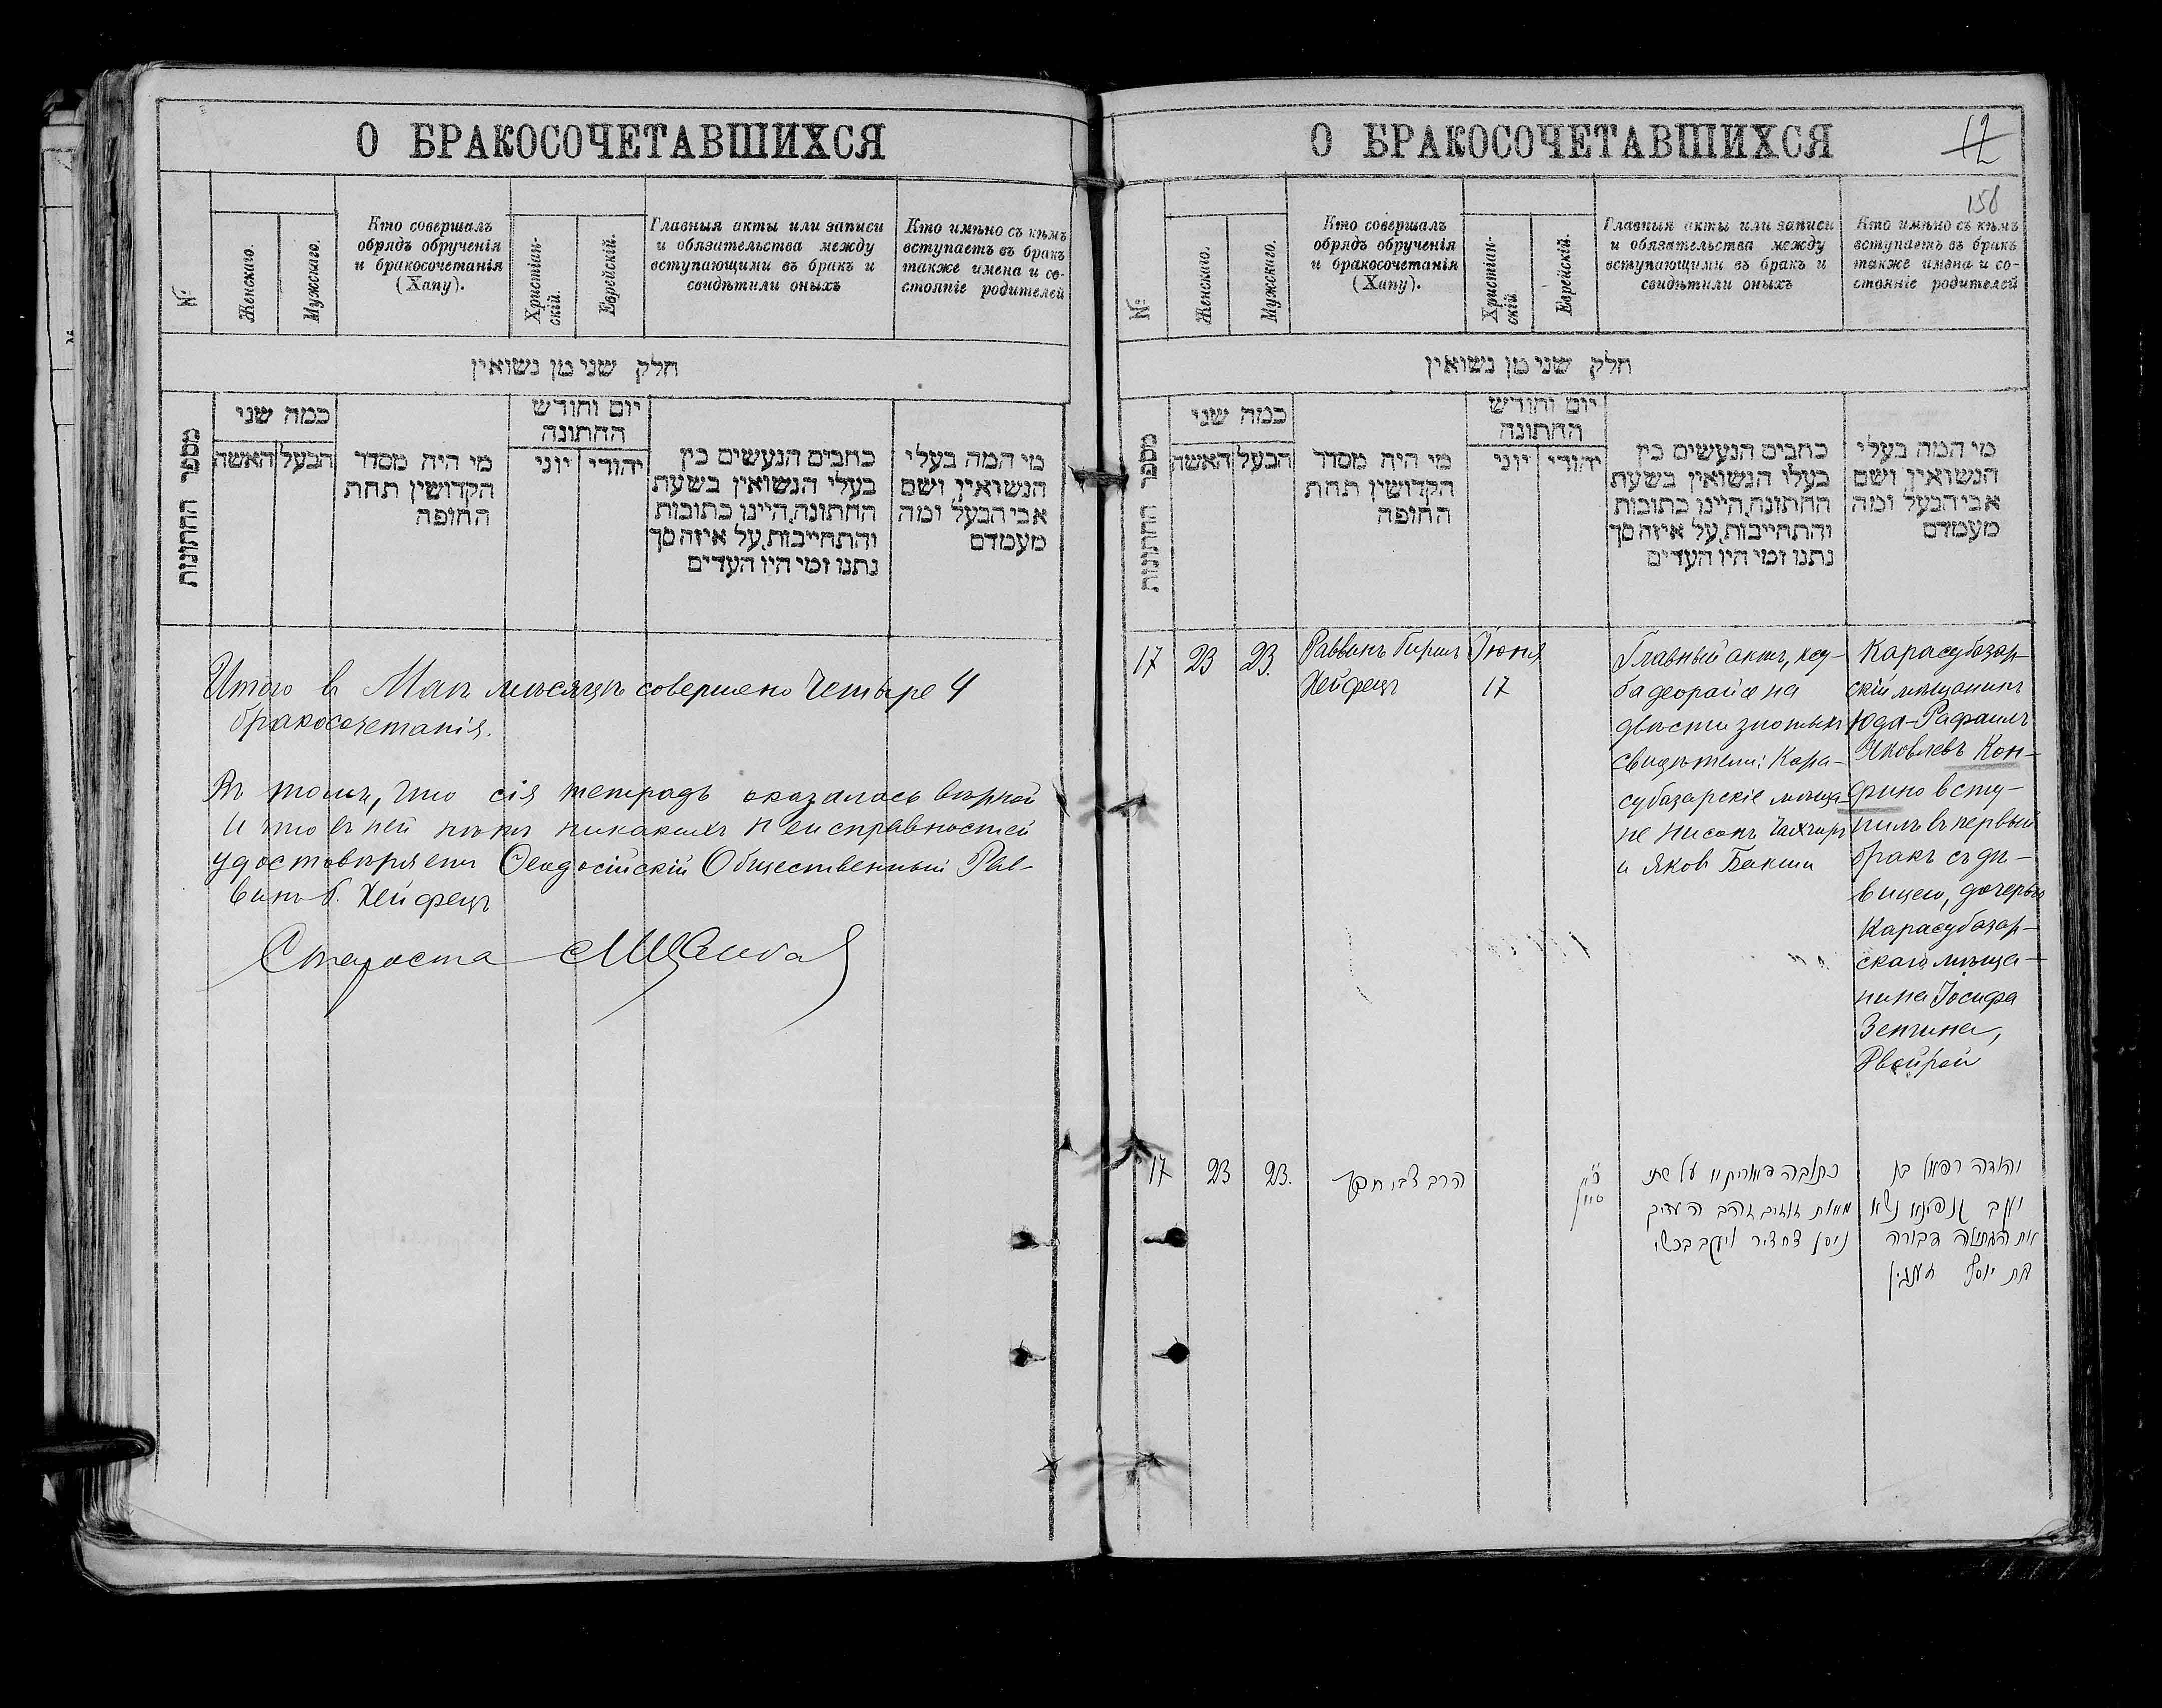 О БРАКОСОЧЕТАВШИХСЯ
№
Женскаго.
Мужскаго.
Кто совершалъ
обрядъ обрученія
и бракосочетанія
(Хапу).
Христіан-
скій.
Еврейскій.
Главныя акты или записи
и обязательства между
вступающими въ бракъ и
свидѣтили оныхъ
Кто имѣно съ кѣмъ
вступаетъ въ бракъ
также имена и со-
стояніе родителей
חלק שני מן נשואין
מספר החתונות
כמה שני
האשה
הבעל
מי היה מסדר
הקדושין תחת
החופה
יום וחודש
החתונה
יוני
יהודי
כחבים הנעשים בין
בעלי הנשואין בשעת
החתונה,היינו כתובות
והתחייבות,על איזה סך
נתנו ומי היו העדים
מי המה בעלי
הנשואין, ושם
אבי הבעל ומה
מעמדם
Итого в Маѣ мѣсяцѣ совершено Четыре 4
бракосочетанія.
Въ томъ, что сія тетрадь оказалась вѣрной
и что въ ней нѣтъ никакихъ неисправностей
удостовѣряетъ Ѳеодосійскій Общественный Рав-
винъ Б. Хейфецъ
Староста
О БРАКОСОЧЕТАВШИХСЯ
12
158
№
Женскаго.
Мужскаго.
Кто совершалъ
обрядъ обрученія
и бракосочетанія
(Хапу).
Христіан-
скій
Еврейскій.
Главныя акты или записи
и обязательства между
вступающими въ бракъ и
свидѣтили оныхъ
Кто имѣно съ кѣмъ
вступаетъ въ бракъ
также имѣна и со-
стояніе родителей
חלק שני מן נשואין
מספר החתונות
כמה שני
האשה
הבעל
מי היה מסדר
הקדושין תחת
החופה
יום וחודש
החתונה
יוני
יהודי
כחבים הנעשים בין
בעלו הנשואין בשעת
החתונה,היינו כתובות
והתחייבות,על איזה סך
נתנו ומי היו העדים
מי המה בעלי
הנשואין, ושם
אבי הבעל ומה
מעמדם
17
23
23.
Раввинъ Гиршъ
Хейфецъ
Іюня
17
Главный актъ, кту-
ба деорайсе на
двѣсти злотыхъ
свидѣтели: Кара-
субазарскіе мѣща-
не Нисонъ Чахчиръ
и Яковъ Бакши
Карасубазар-
скій мѣщанинъ
Юда-Рафаилъ
Яковлевъ Кон-
фино всту-
пилъ въ первый
бракъ съ дѣ-
вицею, дочерью
Карасубазар-
скаго мѣща-
нина Іосифа
Зенгина,
Двойрой
17
23
23.
הרב צבי חפץ
סיון
כתובה דאורייתא על שתי
מאות זוזים זהב העדים
ניסן צחציר ויעקב בכשי
יהודה רפאל בן
יעקב קנפינא נשא
את הבתולה דבורה
בת יוסף זענגין